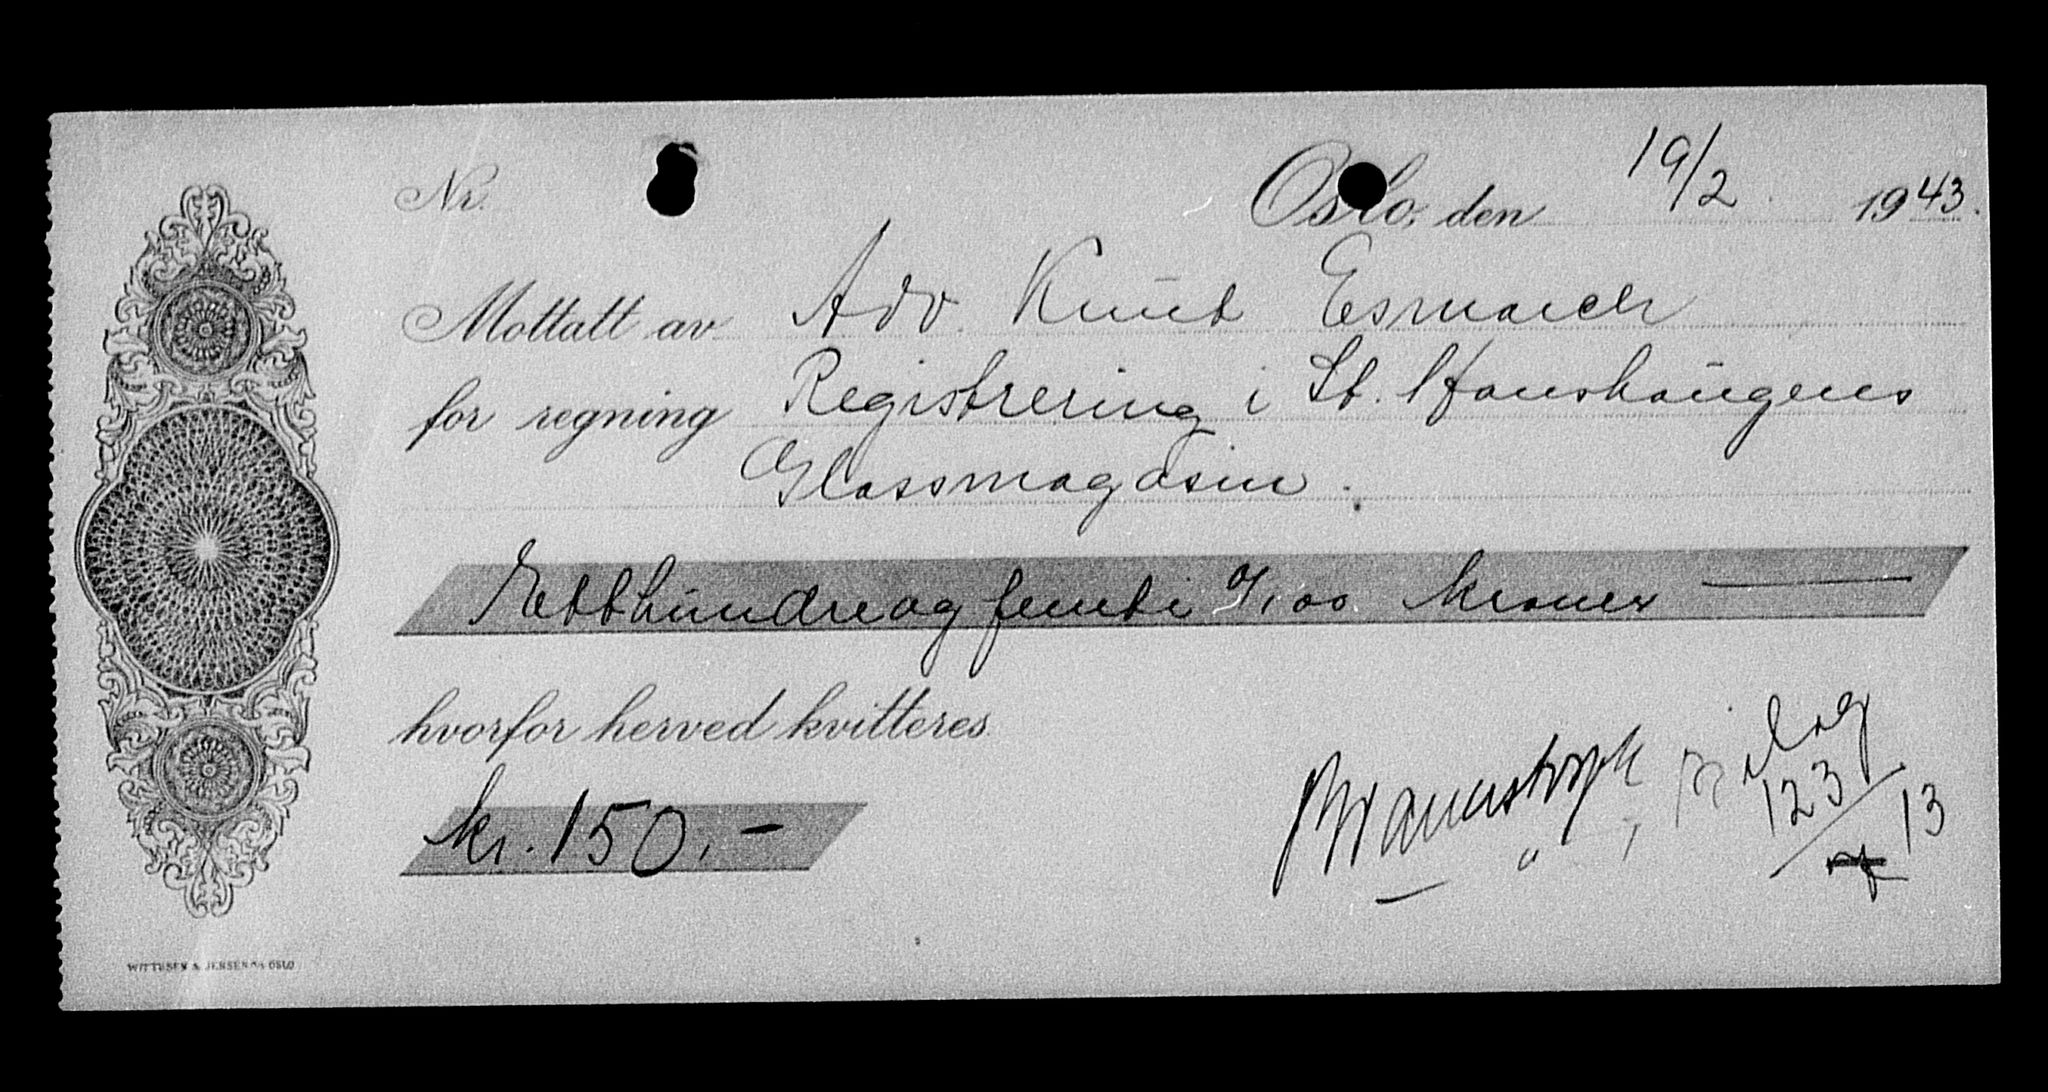 Nr.
Oslo, den 19/2 1943.
Mottatt av Adv. Knut Esmarch
for regning Registrering i St. Hanshaugens
Glassmagasin.
Etthundreogfemti 0/100 kroner
hvorfor herved kvitteres
kr. 150.-
Bilag
123
13
WITTUSEN & JENSEN A/S OSLO